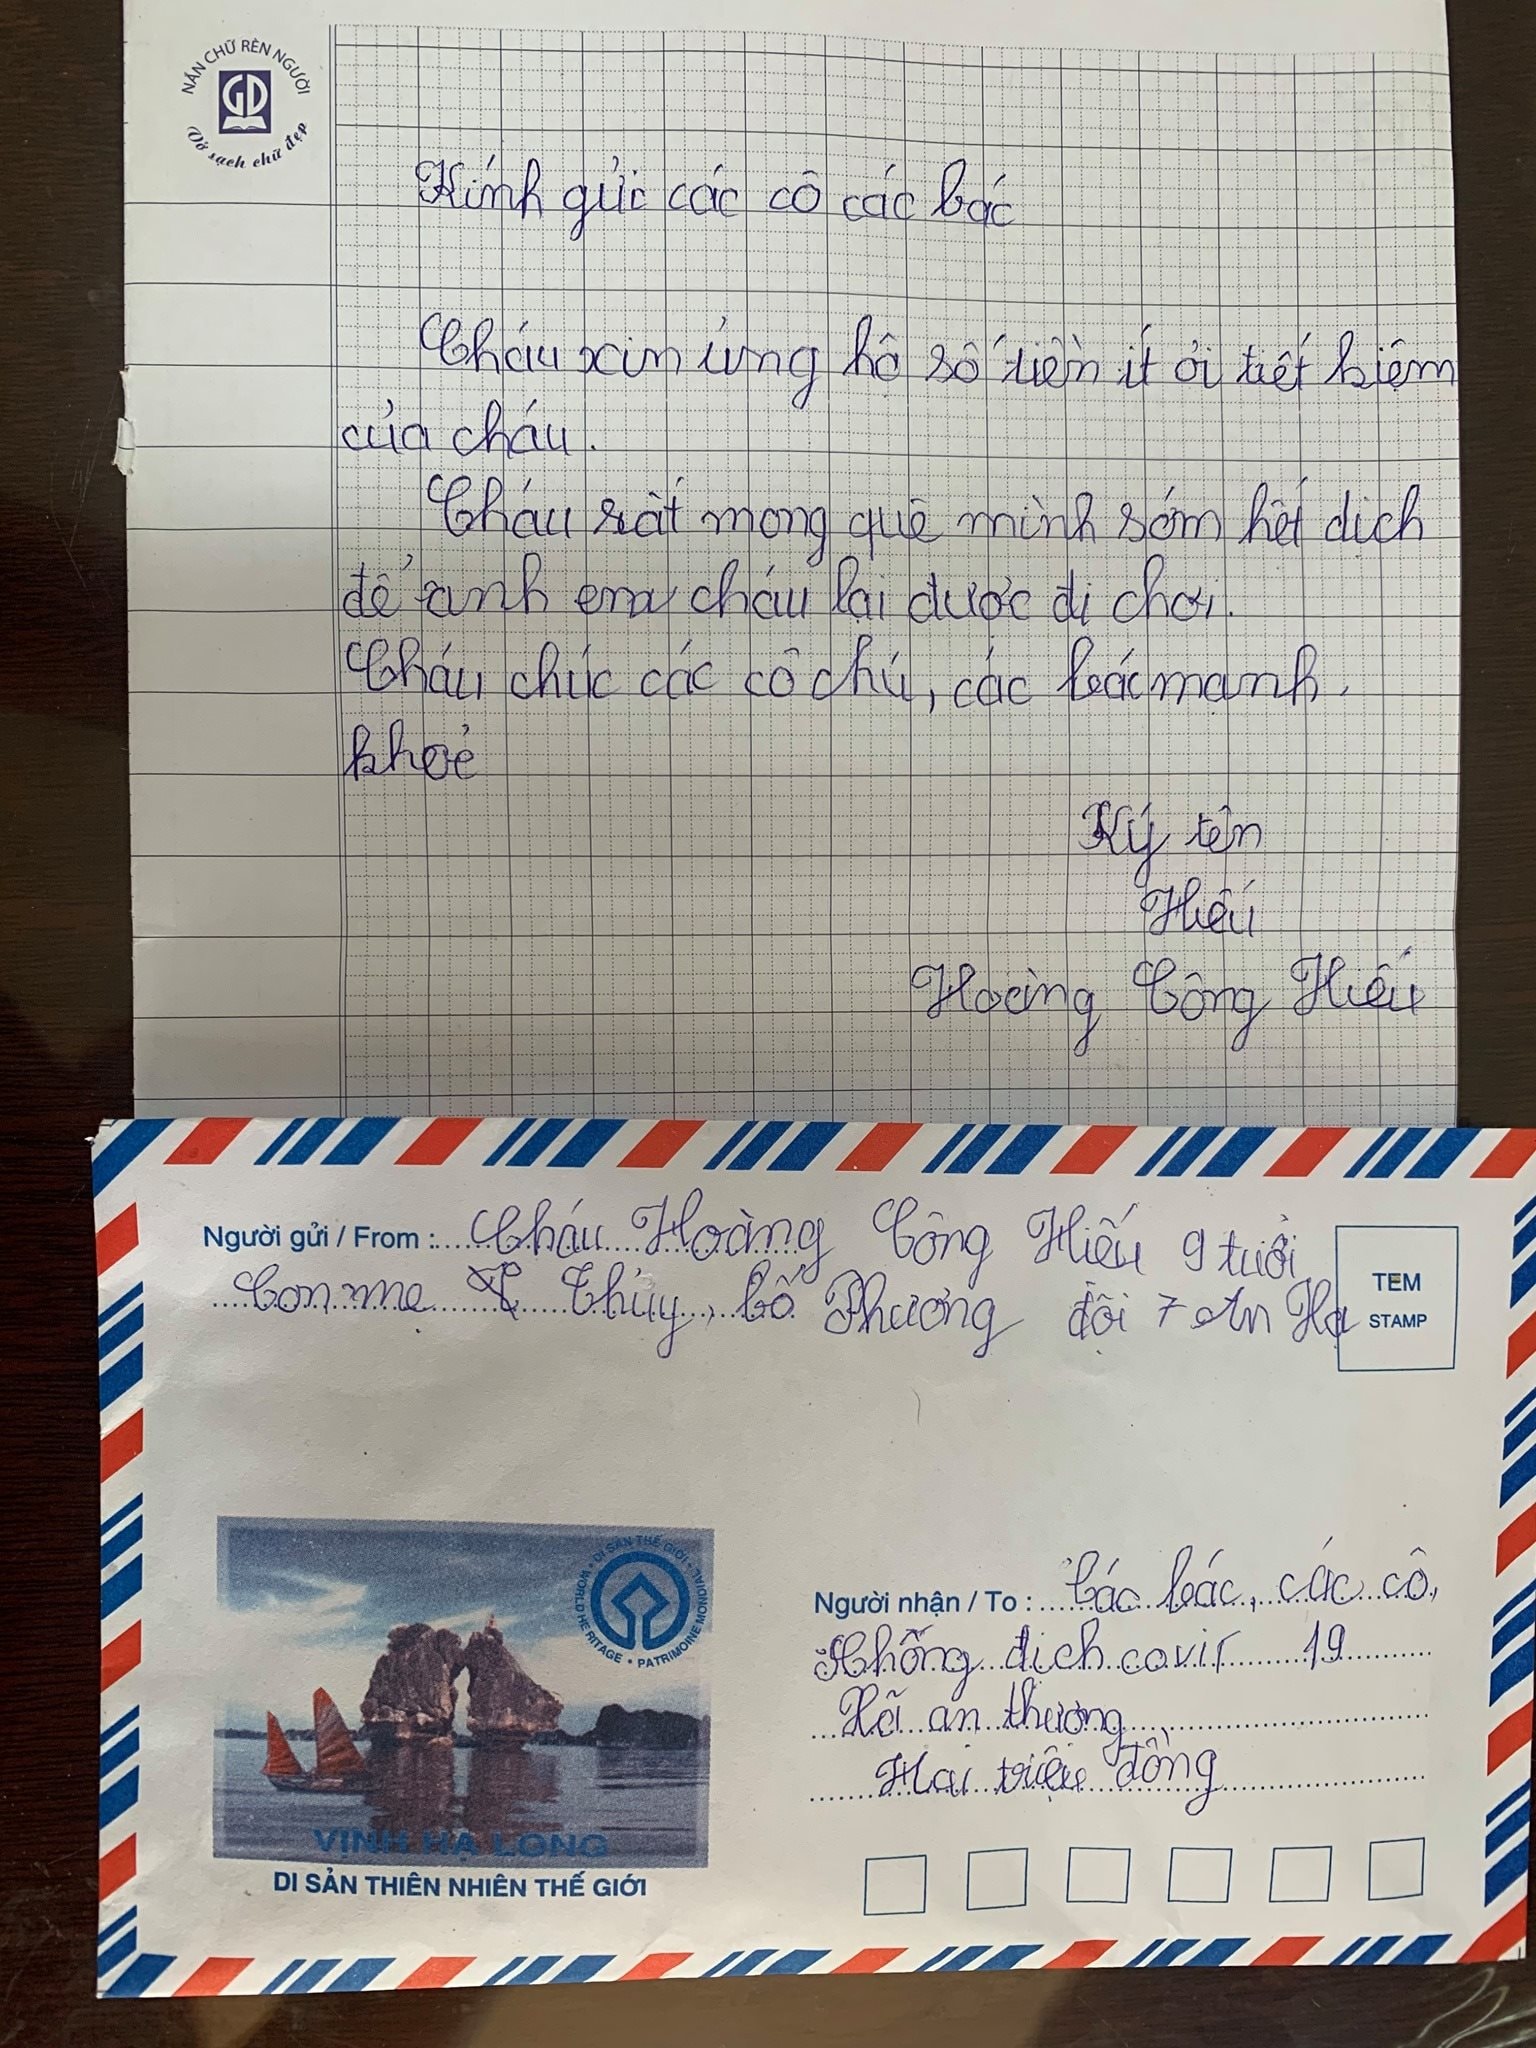 NẮN CHỮ RÈN NGƯỜI
GD
Vở sạch chữ đẹp
Kính gửi các cô các bác
Cháu xin ủng hộ số tiền ít ỏi tiết kiệm
của cháu.
Cháu rất mong quê mình sớm hết dịch
để anh em cháu lại được đi chơi.
Cháu chúc các cô chú, các bác mạnh
khoẻ
Ký tên
Hiếu
Hoàng Công Hiếu
Người gửi / From : Cháu Hoàng Công Hiếu 9 tuổi
Con mẹ Thủy, bố Phương đội 7 An Hạ
TEM
STAMP
DI SẢN THẾ GIỚI • WORLD HERITAGE • PATRIMOINE MONDIAL
VỊNH HẠ LONG
DI SẢN THIÊN NHIÊN THẾ GIỚI
Người nhận / To : Các bác, các cô,
Chống dịch covir 19
Xã an thượng
Hai triệu đồng